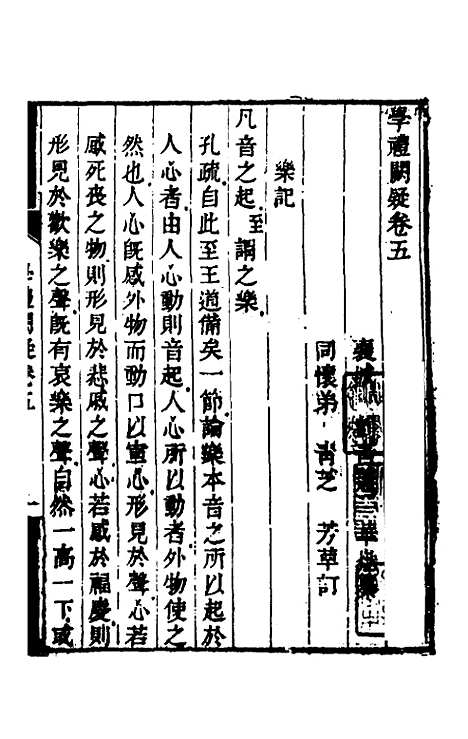 學禮闕疑卷五
同懷弟 青芝 芳草訂
樂記
凡音之起至謂之樂
孔疏自此至王道備矣一節論樂本音之所以起於
人心者由人心動則音起人心所以動者外物使之
然也人心旣感外物而動口以宣心形見於聲心若
感死喪之物則形見於悲戚之聲心若感於福慶則
形見於歡樂之聲旣有哀樂之聲自然一高一下或
學禮闕疑卷五
一